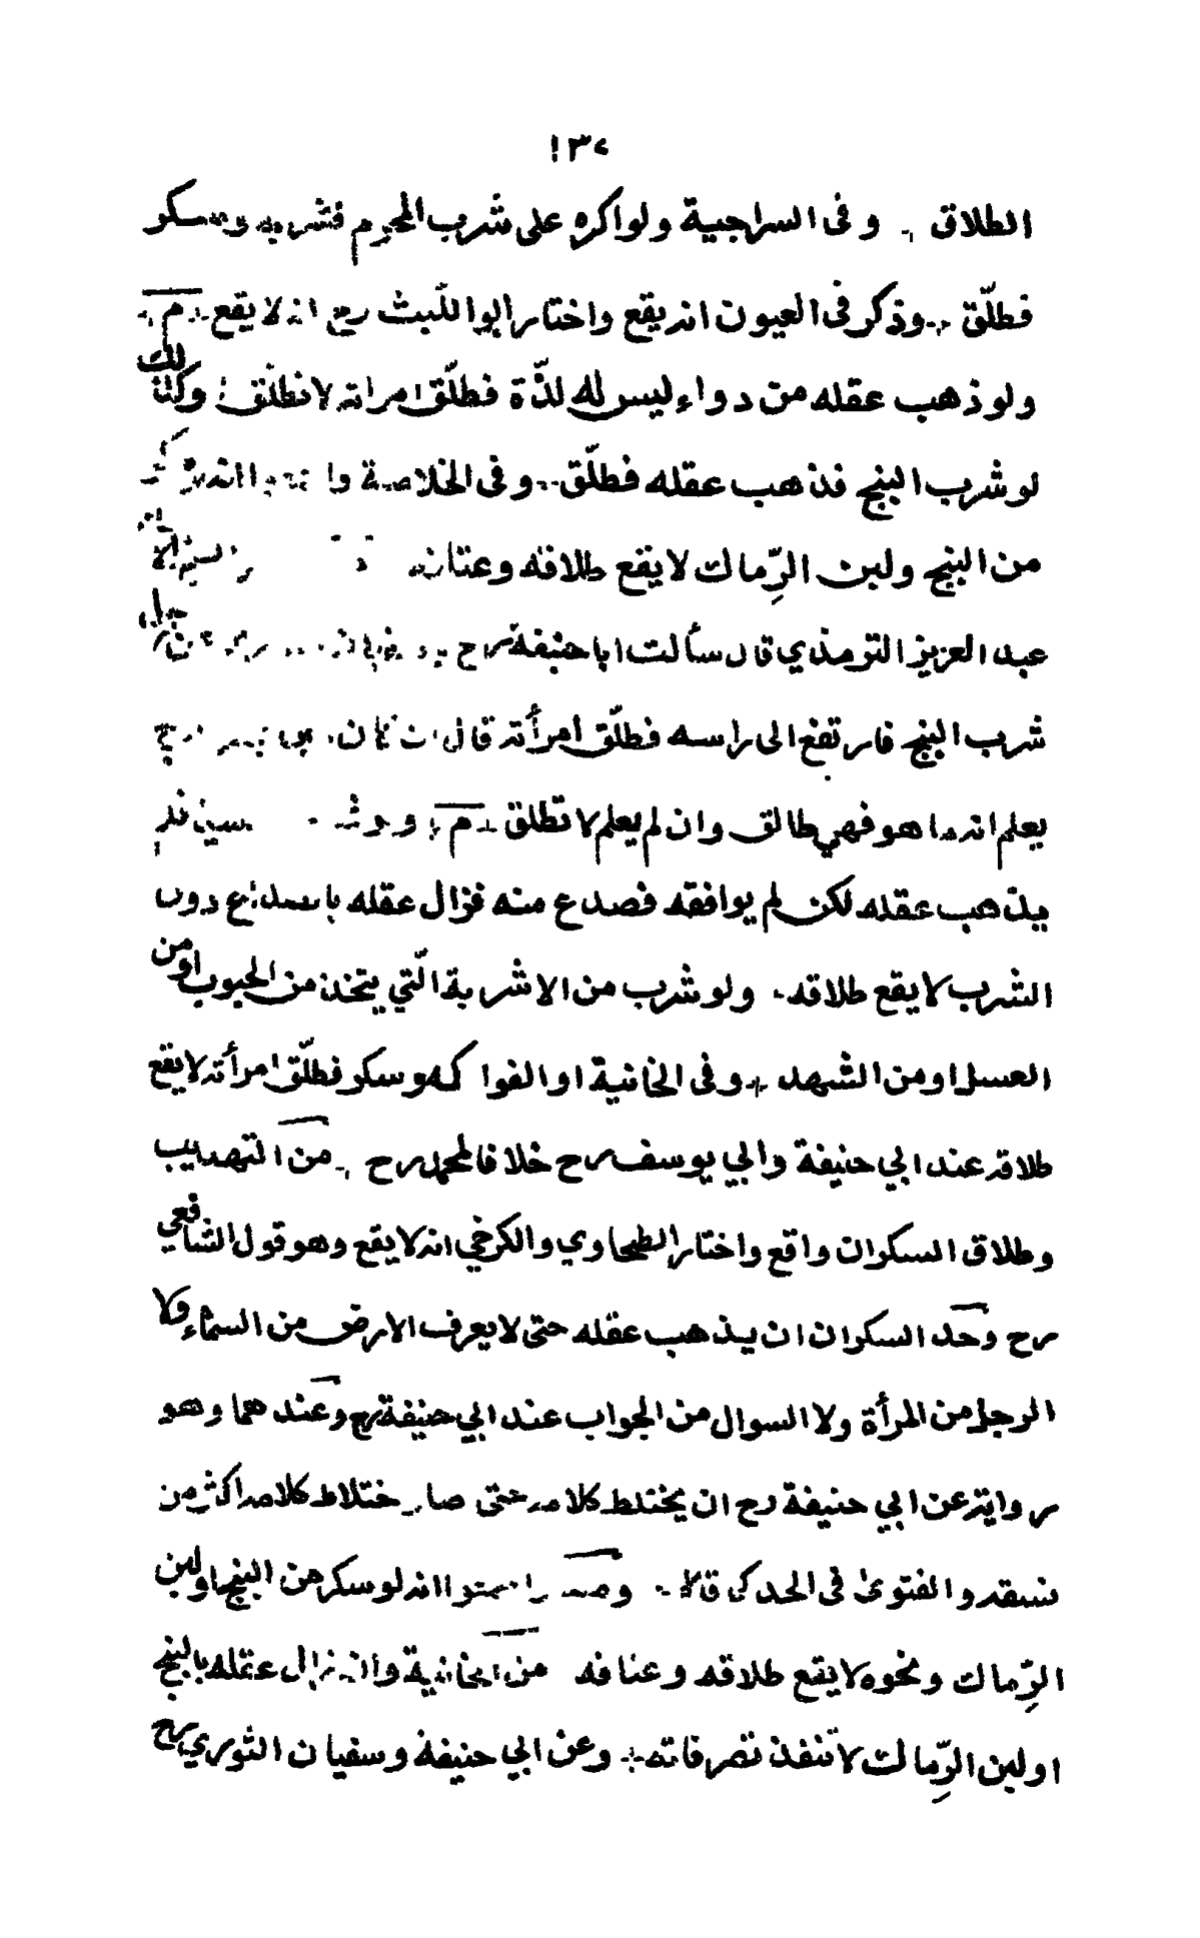 ١٣٧
الطلاق وفى السراجية ولو اكره على شرب المحرم فشربه وسكر
فطلّق وذكر فى العيون انه يقع واختار ابو اللّيث رح انه لا يقع م
ولو ذهب عقله من دواء ليس له لذّة فطلّق امراته لا تطلّق وكذلك
لو شرب البنج فذهب عقله فطلّق وفى الخلاصة
من البنج ولبن الرِّماك لا يقع طلاقه وعتاقه
عبد العزيز الترمذي قال سألت ابا حنيفة رح
شرب البنج فارتفع الى راسه فطلّق امرأته قال ان كان حين
يعلم انه ما هو فهي طالق وان لم يعلم لا تطلق م ولو فلم
يذهب عقله لكن لم يوافقه فصدع منه فزال عقله بالصداع دون
الشرب لا يقع طلاقه ولو شرب من الاشربة الّتي يتخذ من الحبوب او من
العسل او من الشهد وفى الخانية او الفواكه وسكر فطلّق امرأته لا يقع
طلاقه عند ابي حنيفة وابي يوسف رح خلافا لمحمد رح من التهذيب
وطلاق السكران واقع واختار الطحاوي والكرخي انه لا يقع وهو قول الشافعي
رح وحد السكران ان يذهب عقله حتى لا يعرف الارض من السماء ولا
الرجل من المرأة ولا السوال من الجواب عند ابي حنيفة رح وعندهما وهو
رواية عن ابي حنيفة رح ان يختلط كلامه حتى صار اختلاط كلامه اكثر من
نسقه والفتوى فى الحد كى قالا انه لو سكر من البنج او لبن
الرِّماك ونحوه لا يقع طلاقه وعتاقه من الخانية وان زال عقله بالبنج
او لبن الرِّماك لا تنفذ تصرفاته وعن ابي حنيفة وسفيان الثوري رح